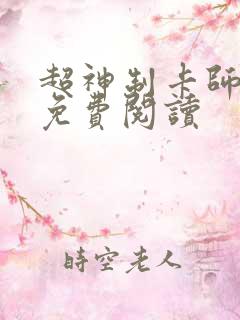 超神制卡師
免費閱讀
時空老人